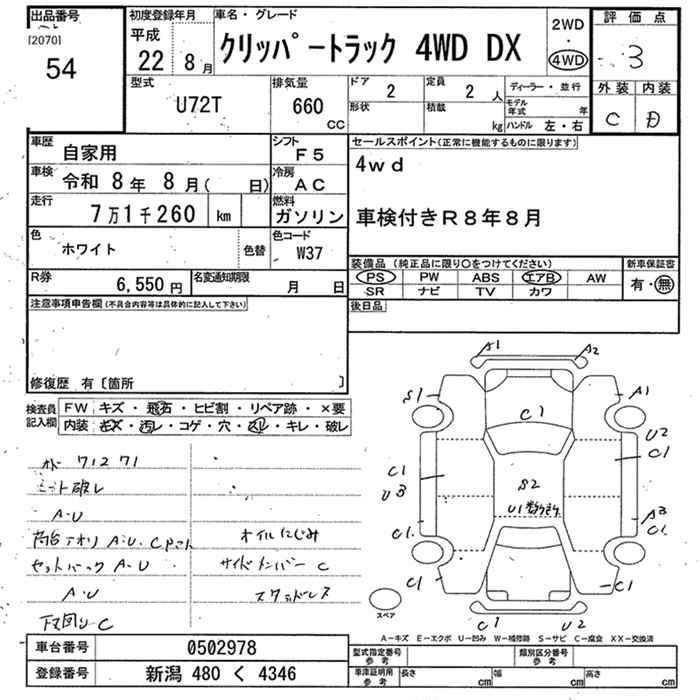 出品番号
[2070]
54
初度登録年月
平成
22 8月
車名・グレード
クリッパートラック 4WD DX
2WD
・
4WD
評価点
3
外装 内装
C D
型式
U72T
排気量
660
CC
ドア
2
形状
定員
2 人
積載
kg
ディーラー・並行
モデル年式 年
ハンドル 左・右
車歴
自家用
シフト
F5
車検
令和 8年 8月( 日)
冷房
AC
走行
7万1千260 km
燃料
ガソリン
色
ホワイト
色替
色コード
W37
R券
6,550円
名変通知期限
月 日
セールスポイント(正常に機能するものに限ります)
4wd
車検付きR8年8月
装備品(純正品に限り○をつけてください)
PS PW ABS エアB AW
SR ナビ TV カワ
新車保証書
有・無
後日品
注意事項申告欄(不具合内容等は具体的に記入して下さい)
修復歴 有〔箇所 〕
検査員
記入欄
FW キズ・飛石・ヒビ割・リペア跡・×要
内装 キズ・汚レ・コゲ・穴・スレ・キレ・破レ
71271
シート破レ
A・U
荷台アオリ A・U、C
オイルにじみ
セットバック A・U
サイドメンバー C
A・U
スタッドレス
下回り C
A1
A2
S1
A1
C1
U2
C1
C1
U3
S2
U1
A3
C1
C1
C1
C1
C1
U2
スペア
A-キズ E-エクボ U-凹み W-補修跡 S-サビ C-腐食 XX-交換済
車台番号
0502978
登録番号
新潟 480 く 4346
型式指定番号
参考
類別区分番号
参考
車庫証明用
参考
長さ cm
幅 cm
高さ cm